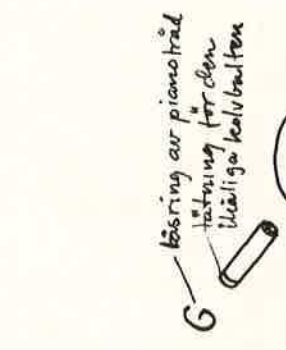 låsring av pianotråd
tätning för den
ihåliga kolvbulten